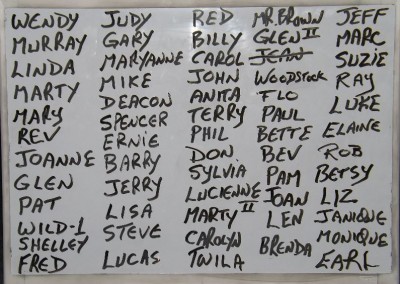 WENDY
MURRAY
LINDA
MARTY
MARY
REV
JOANNE
GLEN
PAT
WILD-1
SHELLEY
FRED
JUDY
GARY
MARYANNE
MIKE
DEACON
SPENCER
ERNIE
BARRY
JERRY
LISA
STEVE
LUCAS
RED
BILLY
CAROL
JOHN
ANITA
TERRY
PHIL
DON
SYLVIA
LUCIENNE
MARTY II
CAROLYN
TWILA
MR. BROWN
GLEN II
JEAN
WOODSTOCK
FLO
PAUL
BETTE
BEV
PAM
JOAN
LEN
BRENDA
JEFF
MARC
SUZIE
RAY
LUKE
ELAINE
ROB
BETSY
LIZ
JANIQUE
MONIQUE
EARL